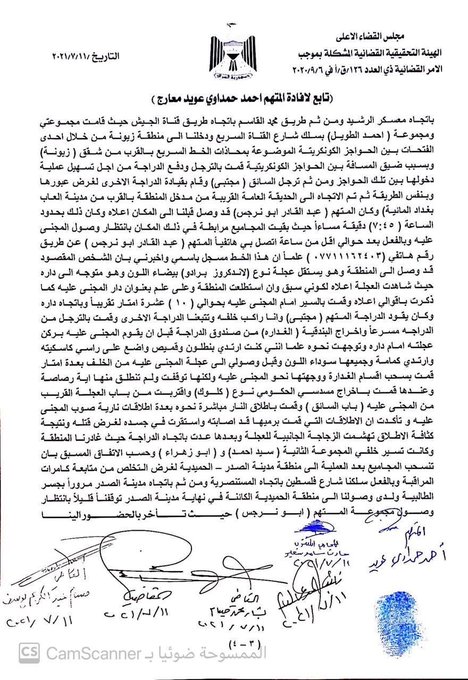 مجلس القضاء الاعلى
الهيئة التحقيقية القضائية المشكلة بموجب
الامر القضائية ذي العدد ١٢٦/ق/أ في ٢٠٢٠/٩/٦
التاريخ /٢٠٢١/٧/١١
(تابع لافادة المتهم احمد حمداوي عويد معارج)
باتجاه معسكر الرشيد ومن ثم طريق محمد القاسم باتجاه طريق قناة الجيش حيث قامت مجموعتي
ومجموعة (احمد الطويل) بسلك شارع القناة السريع ودخلنا الى منطقة زيونة من خلال احدى
الفتحات بين الحواجز الكونكريتية الموضوعة بمحاذات الخط السريع بالقرب من شقق (زيونة)
وبسبب ضيق المسافة بين الحواجز الكونكريتية قمت بالترجل ودفع الدراجة من اجل تسهيل عملية
دخولها بين تلك الحواجز ومن ثم ترجل السائق (مجتبى) وقام بقيادة الدراجة الاخرى لغرض عبورها
وبنفس الطريقة ثم تم الاتجاه الى الحديقة العامة القريبة من مدخل المنطقة بالقرب من مدينة العاب
بغداد المائية) وكان المتهم (عبد القادر ابو نرجس) قد وصل قبلنا الى المكان اعلاه وكان ذلك بحدود
الساعة (٧:٤٥) دقيقة مساءاً حيث بقيت المجاميع مرابطة في ذلك المكان بانتظار وصول المجنى
عليه وبالفعل بعد حوالي اقل من ساعة اتصل بي هاتفياً المتهم (عبد القادر ابو نرجس) عن طريق
رقم هاتفي (٠٧٧١١١٦٢٤٠٣) علماً ان هذا الخط مسجل باسمي واخبرني بان الشخص المقصود
قد وصل الى المنطقة وهو يستقل عجلة نوع (لاندكروز برادو) بيضاء اللون وهو متوجه الى داره
حيث شاهدت العجلة اعلاه لكوني سبق وان استطلعت المنطقة وعلى علم بعنوان دار المجنى عليه كما
ذكرت باقوالي اعلاه وقمت بالسير امام المجنى عليه بحوالي (١٠) عشرة امتار تقريباً وباتجاه داره
وكان يقود الدراجة المتهم (مجتبى) وانا راكب خلفه وتتبعنا الدراجة الاخرى وقمت بالترجل من
الدراجة مسرعاً واخراج البندقية (الغدارة) من صندوق الدراجة قبل ان يقوم المجنى عليه بركن
عجلته امام داره وتوجهت نحوه علما انني كنت ارتدي بنطلون وقميص واضع على راسي كاسكيته
وارتدي كمامة وجميعها سوداء اللون وقبل وصولي الى عجلة المجنى عليه من الخلف بعدة امتار
قمت بسحب اقسام الغدارة ووجهتها نحو المجنى عليه ولكنها توقفت ولم تنطلق منها اية رصاصة
وعندها قمت باخراج مسدسي الحكومي نوع (كلوك) واقتربت من باب العجلة القريب
من المجنى عليه (باب السائق) وقمت باطلاق النار مباشرة نحوه بعدة اطلاقات نارية صوب المجنى
عليه و تأكدت ان الاطلاقات التي قمت برميها قد اصابته واستقرت في جسده لغرض قتله ونتيجة
كثافة الاطلاق تهشمت الزجاجة الجانبية للعجلة وبعدها عدت باتجاه الدراجة حيث غادرنا المنطقة
وكانت تسير خلفي المجموعة الثانية (سيد احمد) و (ابو زهراء) وحسب الاتفاق المسبق بان
تنسحب المجاميع بعد العملية الى منطقة مدينة الصدر – الحميدية لغرض التخلص من متابعة كامرات
المراقبة وبالفعل سلكنا شارع فلسطين باتجاه المستنصرية ومن ثم باتجاه مدينة الصدر مروراً بجسر
الطالبية ولدى وصولنا الى منطقة الحميدية الكائنة في نهاية مدينة الصدر توقفنا قليلاً بانتظار
وصول مجموعة المتهم (ابو نرجس) حيث تأخر بالحضور الينا
المتهم
احمد حمداوي عويد
٢٠٢١/٧/١١
القاضي
٢٠٢١/٧/١١
القاضي
٢٠٢١/٧/١١
(٣-٤)
CS CamScanner الممسوحة ضوئيا بـ